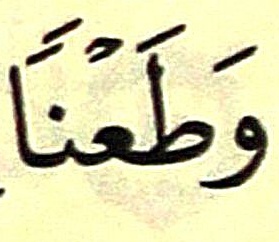 وَطَعْنًا